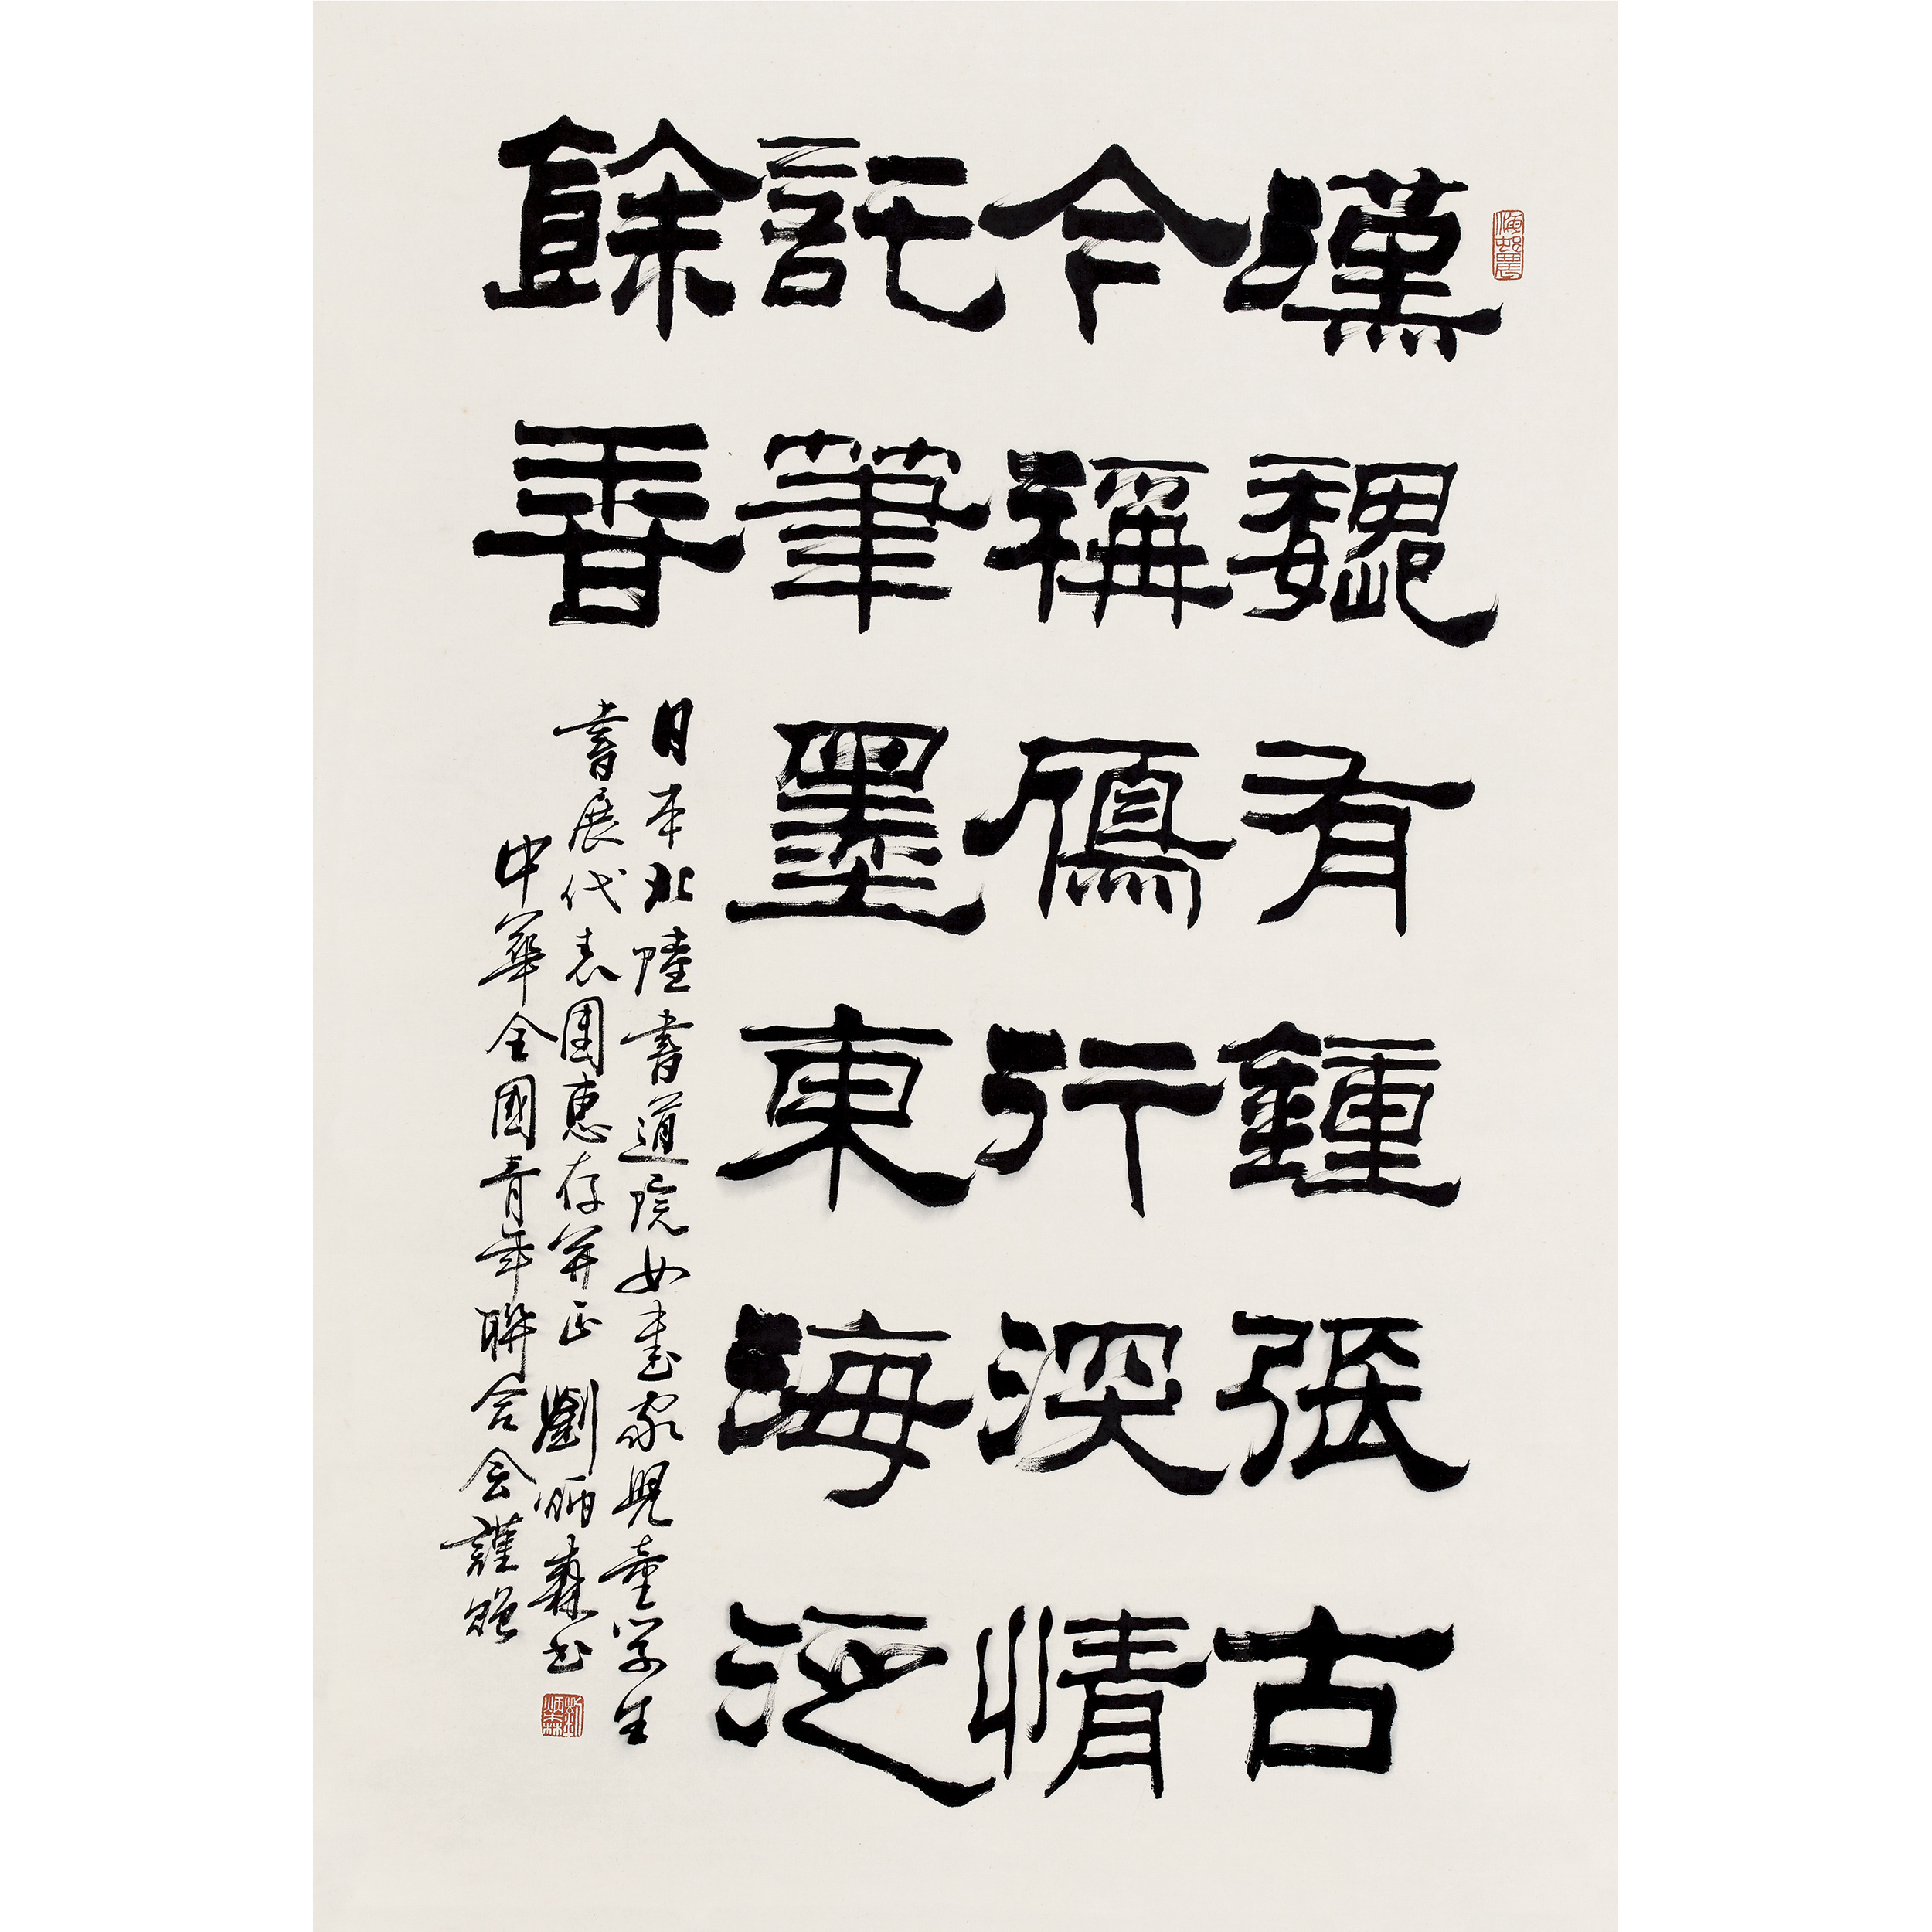 漢魏有鍾張古
今稱鴈行深情
託筆墨東海泛
餘香
日本北陸書道院女書家兒童學生
書展代表團惠存并正 劉炳森書
中華全國青年聯合会謹贈
劉炳森